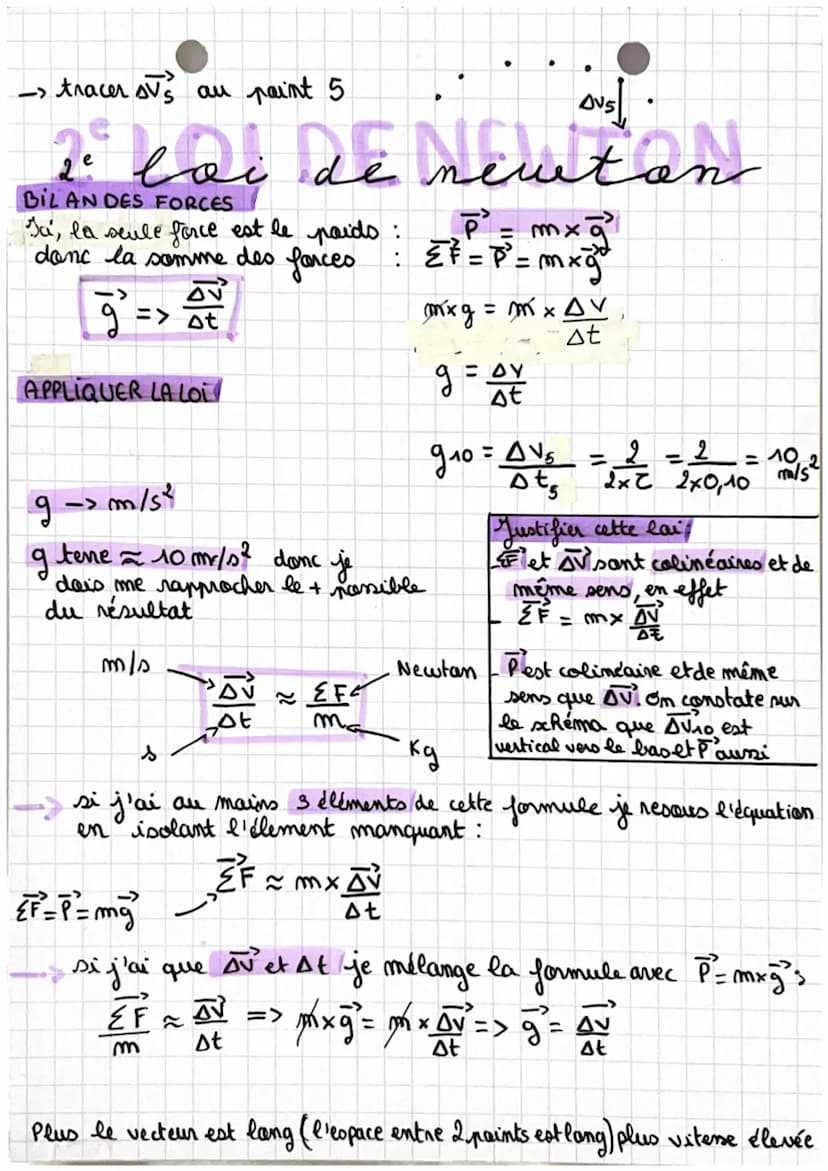 -> tracer ΔV⃗5 au point 5
ΔV5
2e LOI DE NEWTON
2e loi de newton
BILAN DES FORCES
Ici, la seule force est le poids : P⃗ = m x g⃗
donc la somme des forces : ΣF⃗ = P⃗ = m x g⃗
g⃗ => ΔV⃗/Δt
m x g = m x ΔV/Δt
g = ΔV/Δt
APPLIQUER LA LOI
g10 = ΔV5/Δt5 = 2/2xτ = 2/2x0,10 = 10 m/s²
g -> m/s²
g terre ≈ 10 m/s² donc je
dois me rapprocher le + possible
du résultat
Justifier cette loi :
ΣF⃗ et ΔV⃗ sont colinéaires et de
même sens, en effet
- ΣF⃗ = m x ΔV⃗/Δt
- P⃗ est colinéaire et de même
sens que ΔV⃗. On constate sur
le schéma que ΔV⃗10 est
vertical vers le bas et P⃗ aussi
m/s
Newton
ΔV⃗/Δt ≈ ΣF⃗/m
s
Kg
-> si j'ai au moins 3 éléments de cette formule je resous l'équation
en isolant l'élement manquant :
ΣF⃗ ≈ m x ΔV⃗/Δt
ΣF⃗ = P⃗ = mg⃗
-> si j'ai que ΔV⃗ et Δt je mélange la formule avec P⃗ = m x g⃗ :
ΣF⃗/m ≈ ΔV⃗/Δt => m x g⃗ = m x ΔV⃗/Δt => g⃗ = ΔV⃗/Δt
Plus le vecteur est long (l'espace entre 2 points est long) plus vitesse élevée